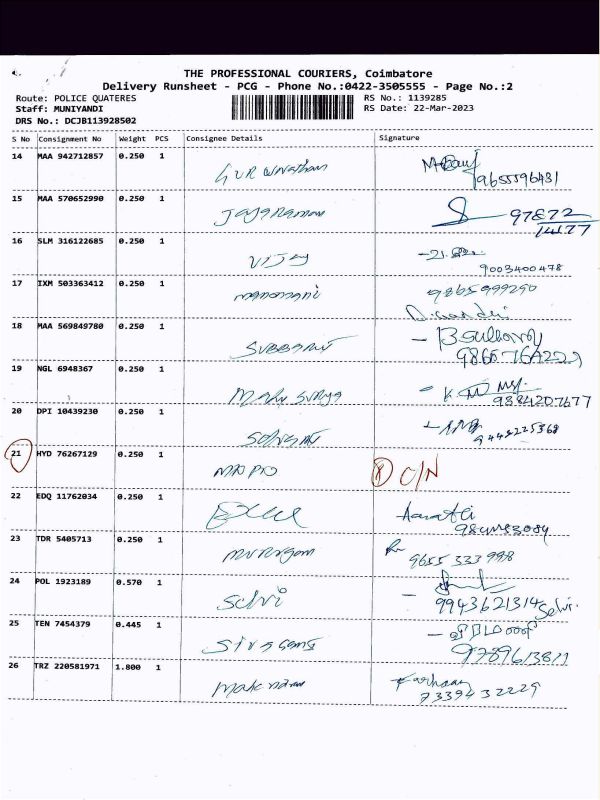 THE PROFESSIONAL COURIERS, Coimbatore
Delivery Runsheet - PCG - Phone No.:0422-3505555 - Page No.:2
Route: POLICE QUATERES RS No.: 1139285
Staff: MUNIYANDI RS Date: 22-Mar-2023
DRS No.: DCJB113928502
S No Consignment No Weight PCS Consignee Details Signature
14 MAA 942712857 0.250 1
9655596481
15 MAA 570652990 0.250 1 Jayaraman 97872
14177
16 SLM 316122685 0.250 1 VIJAY
9003400478
17 IXM 503363412 0.250 1 manomani 9865999290
18 MAA 569849780 0.250 1
19 NGL 6948367 0.250 1 Madhu Surya
9884207677
20 DPI 10439230 0.250 1
9445225368
21 HYD 76267129 0.250 1 O/N
22 EDQ 11762034 0.250 1 Aarathi
23 TDR 5405713 0.250 1 murugan 9655 333 998
24 POL 1923189 0.570 1 Selvi
9943621314 Selvi
25 TEN 7454379 0.445 1
9789613811
26 TRZ 220581971 1.800 1 Farhaan
7339432229